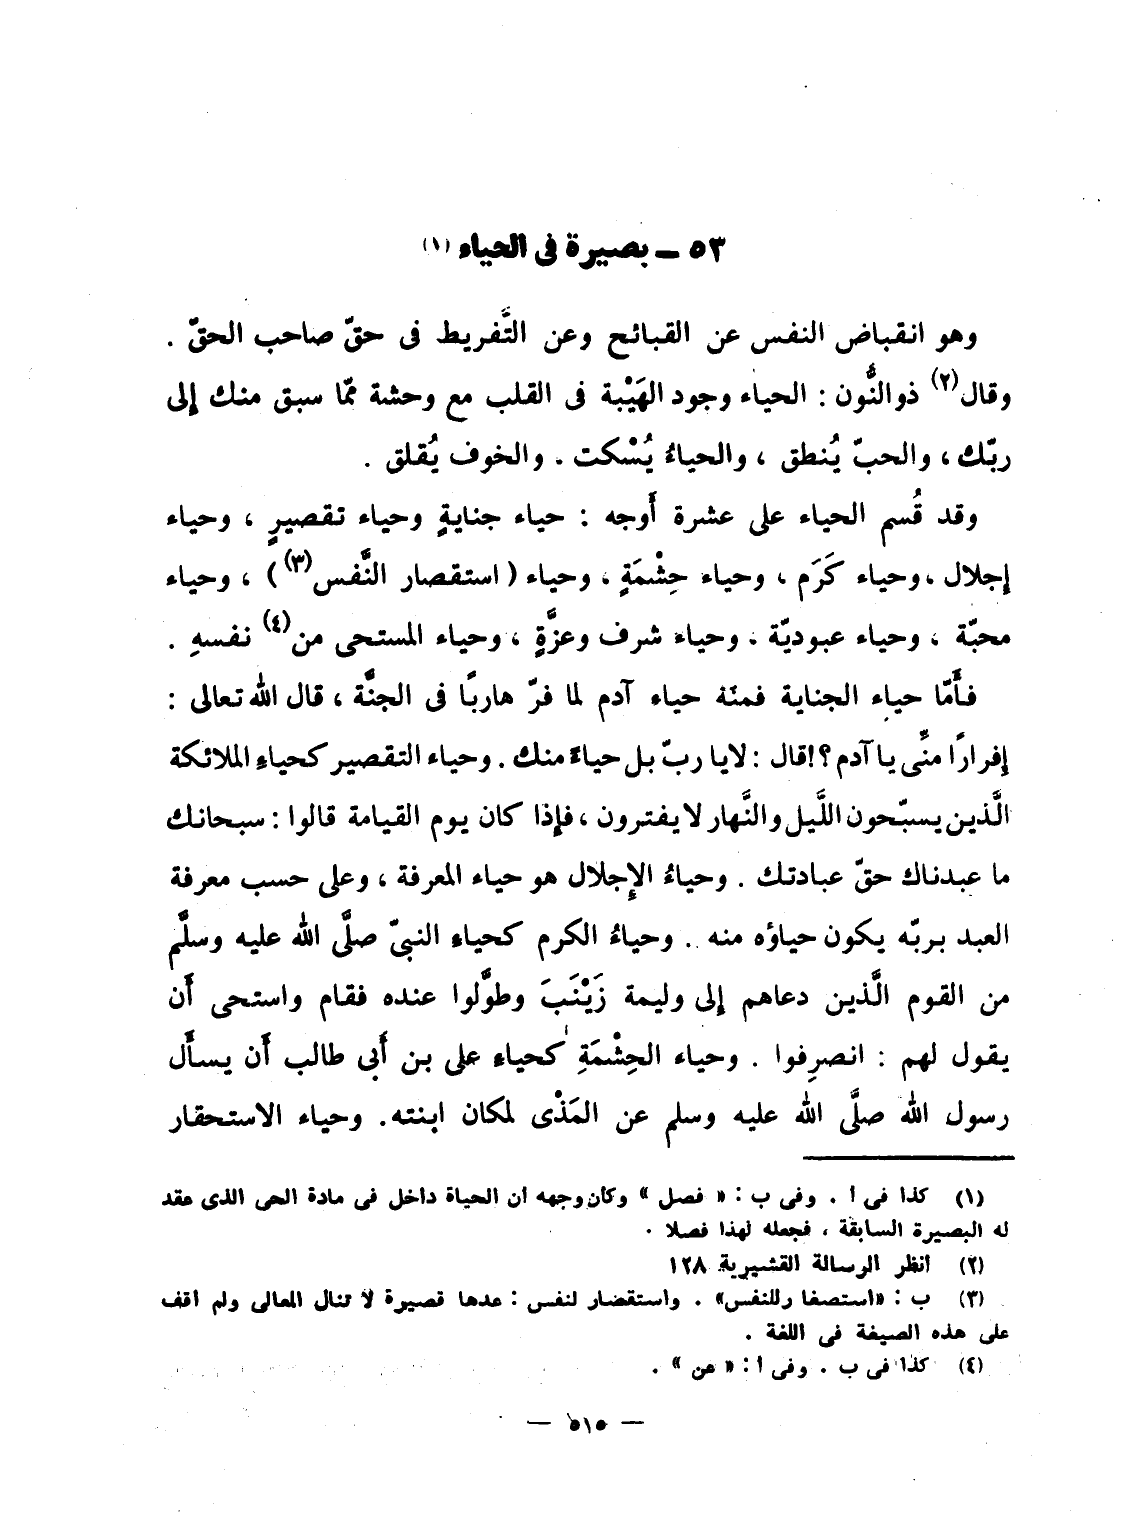 ٥٣ ــ بصيرة فى الحياء (١)
وهو انقباض النفس عن القبائح وعن التَّفريط فى حقّ صاحب الحقّ .
وقال(٢) ذوالنُّون : الحياء وجود الهَيْبة فى القلب مع وحشة ممّا سبق منك إلى
ربّك ، والحبّ يُنطق ، والحياءُ يُسْكت . والخوف يُقلق .
وقد قُسم الحياء على عشرة أَوجه : حياء جنايةٍ وحياء تقصيرٍ ، وحياء
إجلال ، وحياء كَرَم ، وحياء حِشْمَةٍ ، وحياء (استقصار النَّفس(٣)) ، وحياء
محبّة ، وحياء عبوديّة ، وحياء شرف وعزَّةٍ ، وحياء المستحى من(٤) نفسهِ .
فأَمّا حياء الجناية فمنه حياء آدم لما فرّ هاربًا فى الجنَّة ، قال الله تعالى :
إفرارًا منِّى يا آدم؟! قال : لا يا ربّ بل حياءً منك . وحياء التقصير كحياءِ الملائكة
الَّذين يسبّحون اللَّيل والنَّهار لا يفترون ، فإذا كان يوم القيامة قالوا : سبحانك
ما عبدناك حقّ عبادتك . وحياءُ الإِجلال هو حياء المعرفة ، وعلى حسب معرفة
العبد بربّه يكون حياؤه منه . وحياءُ الكرم كحياءِ النبىّ صلَّى الله عليه وسلَّم
من القوم الَّذين دعاهم إلى وليمة زَيْنَبَ وطوَّلوا عنده فقام واستحى أَن
يقول لهم : انصرِفوا . وحياء الحِشْمَةِ كحياء على بن أَبى طالب أَن يسأَل
رسول الله صلَّى الله عليه وسلم عن المَذْى لمكان ابنته . وحياء الاستحقار
(١) كذا فى أ . وفى ب : « فصل » وكان وجهه ان الحياة داخل فى مادة الحى الذى عقد
له البصيرة السابقة ، فجعله لهذا فصلا ٠
(٢) انظر الرسالة القشيرية ١٢٨
(٣) ب : «استصفا رللنفس» . واستقضار لنفس : عدها قصيرة لا تنال المعالى ولم اقف
على هذه الصيغة فى اللغة .
(٤) كذا فى ب . وفى أ : « عن » .
— ٥١٥ —